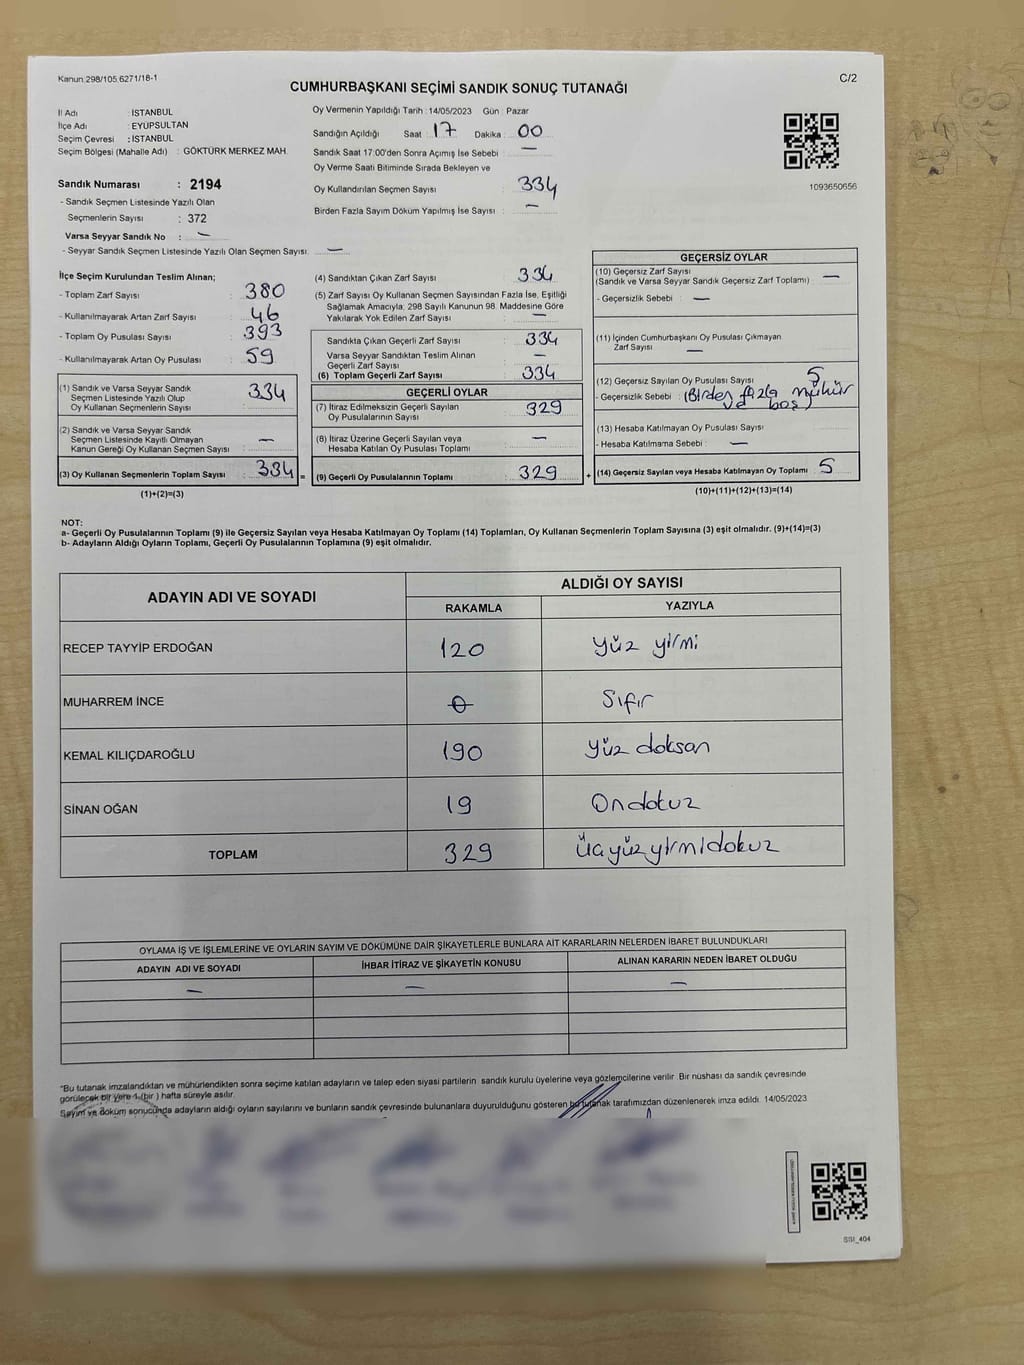 Kanun 298/105.6271/18-1
C/2
CUMHURBAŞKANI SEÇİMİ SANDIK SONUÇ TUTANAĞI
İl Adı : İSTANBUL
İlçe Adı : EYÜPSULTAN
Seçim Çevresi : İSTANBUL
Seçim Bölgesi (Mahalle Adı) : GÖKTÜRK MERKEZ MAH.
Sandık Numarası : 2194
- Sandık Seçmen Listesinde Yazılı Olan
Seçmenlerin Sayısı : 372
Varsa Seyyar Sandık No : —
- Seyyar Sandık Seçmen Listesinde Yazılı Olan Seçmen Sayısı: —
Oy Vermenin Yapıldığı Tarih : 14/05/2023 Gün : Pazar
Sandığın Açıldığı Saat : 17 Dakika : 00
Sandık Saat 17:00'den Sonra Açımış İse Sebebi : —
Oy Verme Saati Bitiminde Sırada Bekleyen ve
Oy Kullandırılan Seçmen Sayısı : 334
Birden Fazla Sayım Döküm Yapılmış İse Sayısı : —
1093650656
İlçe Seçim Kurulundan Teslim Alınan;
- Toplam Zarf Sayısı : 380
- Kullanılmayarak Artan Zarf Sayısı : 46
- Toplam Oy Pusulası Sayısı : 393
- Kullanılmayarak Artan Oy Pusulası : 59
(1) Sandık ve Varsa Seyyar Sandık
Seçmen Listesinde Yazılı Olup
Oy Kullanan Seçmenlerin Sayısı : 334
(2) Sandık ve Varsa Seyyar Sandık
Seçmen Listesinde Kayıtlı Olmayan
Kanun Gereği Oy Kullanan Seçmen Sayısı : —
(3) Oy Kullanan Seçmenlerin Toplam Sayısı : 334 =
(1)+(2)=(3)
(4) Sandıktan Çıkan Zarf Sayısı : 334
(5) Zarf Sayısı Oy Kullanan Seçmen Sayısından Fazla İse, Eşitliği
Sağlamak Amacıyla; 298 Sayılı Kanunun 98. Maddesine Göre
Yakılarak Yok Edilen Zarf Sayısı : —
Sandıkta Çıkan Geçerli Zarf Sayısı : 334
Varsa Seyyar Sandıktan Teslim Alınan
Geçerli Zarf Sayısı : —
(6) Toplam Geçerli Zarf Sayısı : 334
GEÇERLİ OYLAR
(7) İtiraz Edilmeksizin Geçerli Sayılan
Oy Pusulalarının Sayısı : 329
(8) İtiraz Üzerine Geçerli Sayılan veya
Hesaba Katılan Oy Pusulası Toplamı : —
(9) Geçerli Oy Pusulalarının Toplamı : 329 +
GEÇERSİZ OYLAR
(10) Geçersiz Zarf Sayısı
(Sandık ve Varsa Seyyar Sandık Geçersiz Zarf Toplamı) : —
- Geçersizlik Sebebi : —
(11) İçinden Cumhurbaşkanı Oy Pusulası Çıkmayan
Zarf Sayısı : —
(12) Geçersiz Sayılan Oy Pusulası Sayısı : 5
- Geçersizlik Sebebi : (Birden fazla mühür
ve boş)
(13) Hesaba Katılmayan Oy Pusulası Sayısı
- Hesaba Katılmama Sebebi : —
(14) Geçersiz Sayılan veya Hesaba Katılmayan Oy Toplamı : 5
(10)+(11)+(12)+(13)=(14)
NOT:
a- Geçerli Oy Pusulalarının Toplamı (9) ile Geçersiz Sayılan veya Hesaba Katılmayan Oy Toplamı (14) Toplamları, Oy Kullanan Seçmenlerin Toplam Sayısına (3) eşit olmalıdır. (9)+(14)=(3)
b- Adayların Aldığı Oyların Toplamı, Geçerli Oy Pusulalarının Toplamına (9) eşit olmalıdır.
ADAYIN ADI VE SOYADI
ALDIĞI OY SAYISI
RAKAMLA YAZIYLA
RECEP TAYYİP ERDOĞAN 120 Yüz yirmi
MUHARREM İNCE 0 Sıfır
KEMAL KILIÇDAROĞLU 190 Yüz doksan
SİNAN OĞAN 19 Ondokuz
TOPLAM 329 Üçyüzyirmidokuz
OYLAMA İŞ VE İŞLEMLERİNE VE OYLARIN SAYIM VE DÖKÜMÜNE DAİR ŞİKAYETLERLE BUNLARA AİT KARARLARIN NELERDEN İBARET BULUNDUKLARI
ADAYIN ADI VE SOYADI İHBAR İTİRAZ VE ŞİKAYETİN KONUSU ALINAN KARARIN NEDEN İBARET OLDUĞU
— — —
"Bu tutanak imzalandıktan ve mühürlendikten sonra seçime katılan adayların ve talep eden siyasi partilerin sandık kurulu üyelerine veya gözlemcilerine verilir. Bir nüshası da sandık çevresinde
görülecek bir yere 1 (bir) hafta süreyle asılır.
Sayım ve döküm sonucunda adayların aldığı oyların sayılarını ve bunların sandık çevresinde bulunanlara duyurulduğunu gösteren bu tutanak tarafımızdan düzenlenerek imza edildi. 14/05/2023
SSI_404